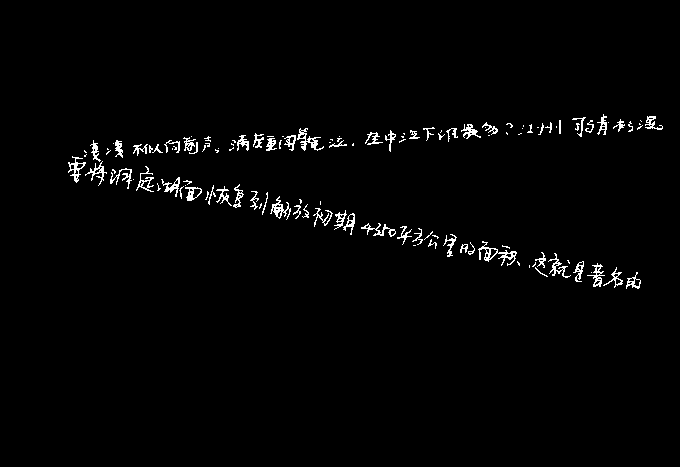 凄凄不似向前声。满座重闻皆掩泣。座中泣下谁最多?江州司马青衫湿。
要将洞庭湖面恢复到解放初期4350平方公里的面积、这就是著名的